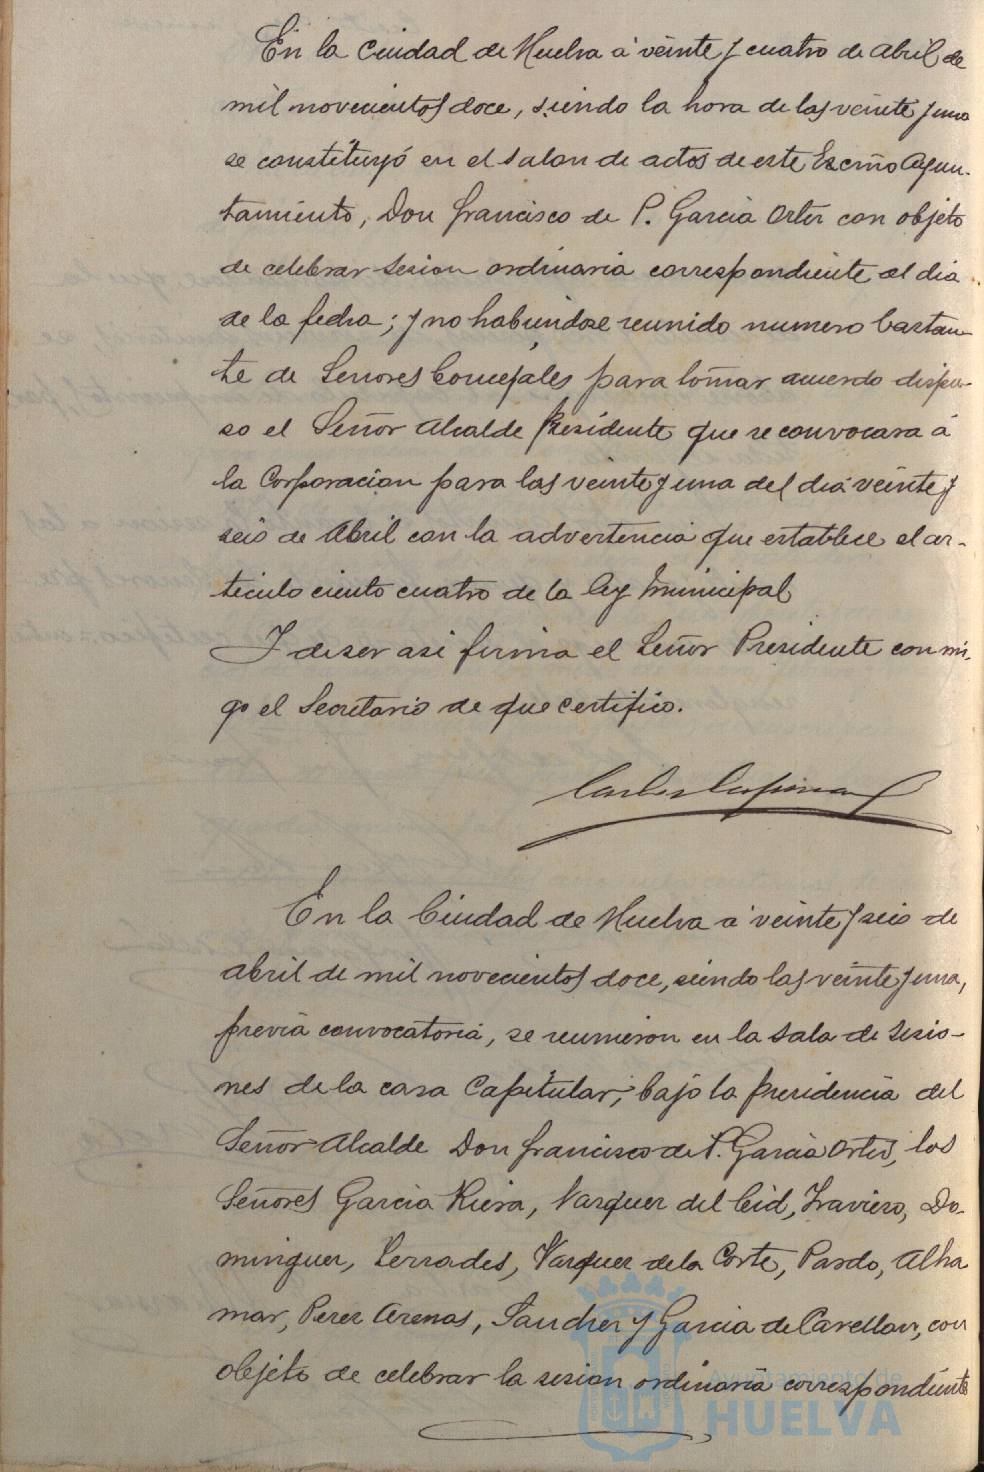 En la Ciudad de Huelva á veinte y cuatro de Abril de
mil novecientos doce, siendo la hora de las veinte y una
se constituyó en el salon de actos de este Excmo Ayun-
tamiento, Don Francisco de P. Garcia Ortiz con objeto
de celebrar sesion ordinaria correspondiente al dia
de la fecha; y no habiendose reunido numero bastan-
te de Señores Concejales para tomar acuerdo dispu-
so el Señor Alcalde Presidente que se convocara á
la Corporacion para las veinte y una del dia veinte y
seis de Abril con la advertencia que establece el ar-
ticulo ciento cuatro de la ley Municipal
Y de ser asi firma el Señor Presidente con mi-
go el Secretario de que certifico.
En la Ciudad de Huelva a veinte y seis de
abril de mil novecientos doce, siendo las veinte y una,
previa convocatoria, se reunieron en la sala de sesio-
nes de la casa Capitular, bajo la presidencia del
Señor Alcalde Don Francisco de P. Garcia Ortiz, los
Señores Garcia Riera, Vazquez del Cid, Traviero, Do-
minguez, Serrades, Vazquez de la Corte, Pardo, Alha
mar, Perez Arenas, Sanchez y Garcia de Cavellan, con
objeto de celebrar la sesion ordinaria correspondiente
Ayuntamiento de
HUELVA